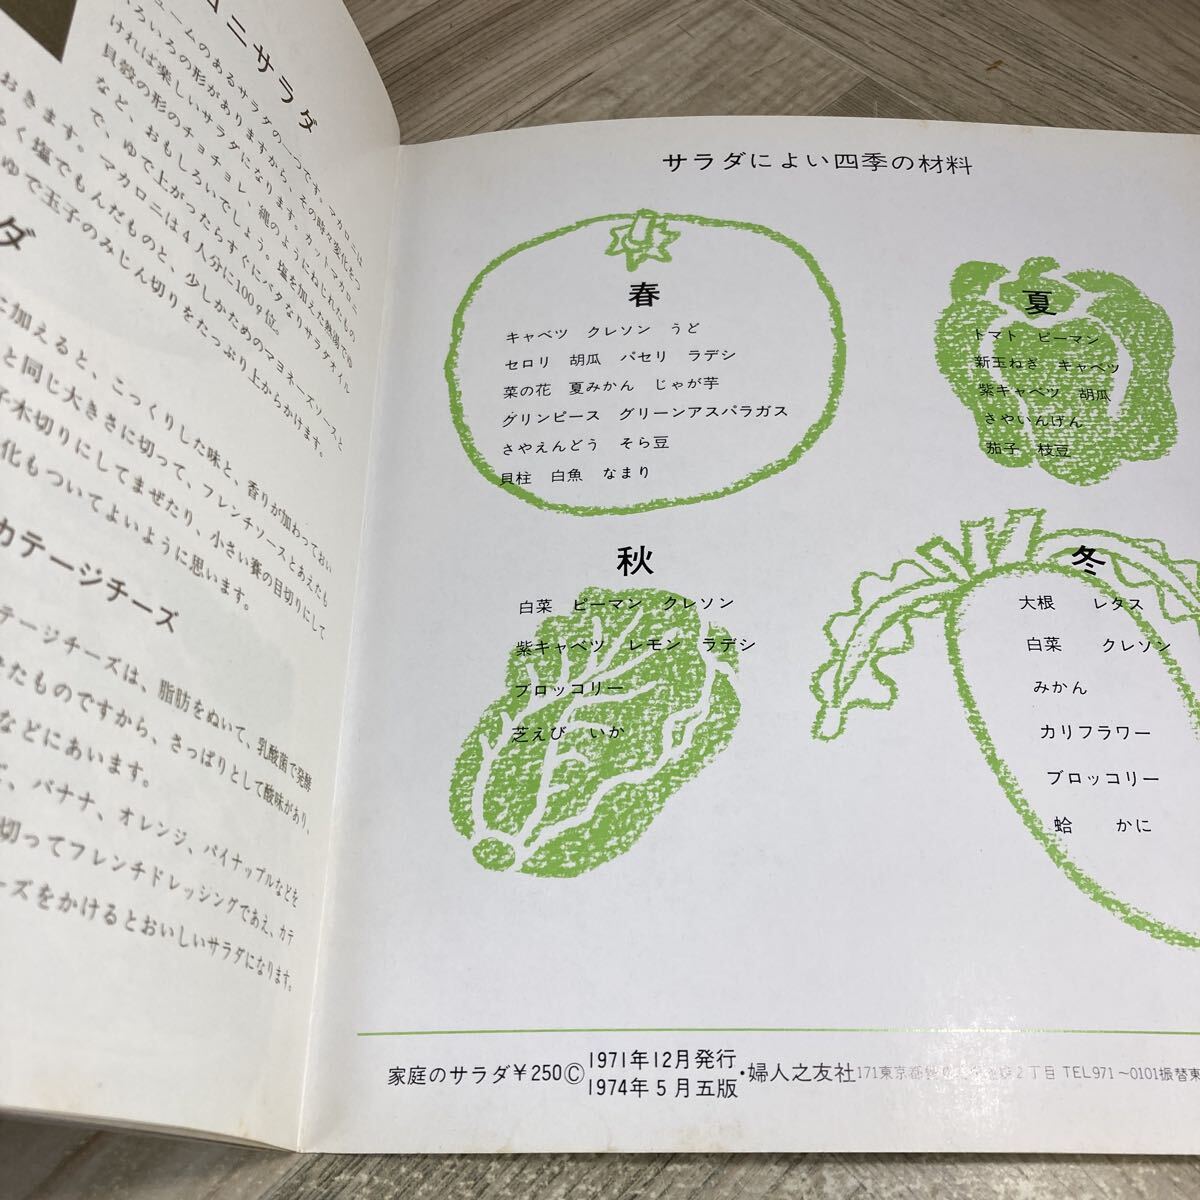 ニサラダ
ュームのあるサラダの一つです。マカロニは
ろいろの形がありますから、その時々変化をつ
ければ楽しいサラダになります。カットマカロニ
貝殻の形のチョチョレ、縄のようにねじれたもの
など、おもしろいでしょう。塩を加えた熱湯でゆ
で、ゆで上がったらすぐにバタなりサラダオイル
おきます。マカロニは4人分に100g位。
るく塩でもんだものと、少しかためのマヨネーズソースと
ゆで玉子のみじん切りをたっぷり上からかけます。
ダ
に加えると、こっくりした味と、香りが加わっておい
と同じ大きさに切って、フレンチソースとあえたも
子木切りにしてまぜたり、小さい賽の目切りにして
化もついてよいように思います。
カテージチーズ
テージチーズは、脂肪をぬいて、乳酸菌で発酵
きたものですから、さっぱりとして酸味があり、
などにあいます。
、バナナ、オレンジ、パイナップルなどを
切ってフレンチドレッシングであえ、カテ
ーズをかけるとおいしいサラダになります。
サラダによい四季の材料
春
キャベツ クレソン うど
セロリ 胡瓜 パセリ ラデシ
菜の花 夏みかん じゃが芋
グリンピース グリーンアスパラガス
さやえんどう そら豆
貝柱 白魚 なまり
夏
トマト ピーマン
新玉ねぎ キャベツ
紫キャベツ 胡瓜
さやいんげん
茄子 枝豆
秋
白菜 ピーマン クレソン
紫キャベツ レモン ラデシ
ブロッコリー
芝えび いか
冬
大根 レタス
白菜 クレソン
みかん
カリフラワー
ブロッコリー
蛤 かに
家庭のサラダ¥250© 1971年12月発行
1974年5月五版・婦人之友社 171東京都 2丁目 TEL971〜0101振替東